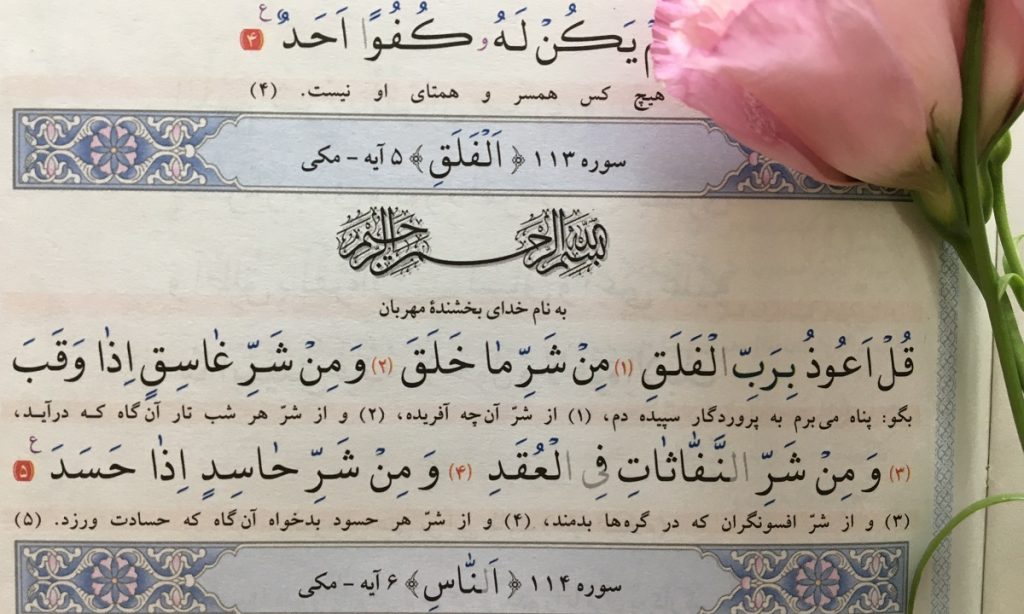 يَكُنْ لَهُ و كُفُوًا اَحَدٌ ۴ ع
هیچ کس همسر و همتای او نیست. (۴)
سوره ۱۱۳ ﴿ اَلْفَلَقِ ﴾ ۵ آیه - مکی
بسم الله الرحمن الرحیم
به نام خدای بخشندهٔ مهربان
قُلْ اَعُوذُ بِرَبِّ الْفَلَقِ (۱) مِنْ شَرِّ مٰا خَلَقَ (۲) وَ مِنْ شَرِّ غٰاسِقٍ اِذٰا وَقَبَ
بگو: پناه می‌برم به پروردگار سپیده دم، (۱) از شرّ آن‌چه آفریده، (۲) و از شرّ هر شب تار آن گاه کـه درآیـد،
(۳) وَ مِنْ شَرِّ النَّفّٰاثٰاتِ فِي الْعُقَدِ (۴) وَ مِنْ شَرِّ حٰاسِدٍ اِذٰا حَسَدَ ۵ ع
(۳) و از شرّ افسونگران که در گره‌ها بدمند، (۴) و از شرّ هر حسود بدخواه آن‌گاه که حسادت ورزد. (۵)
سوره ۱۱۴ ﴿ اَلنّٰاسِ ﴾ ۶ آیه - مکی